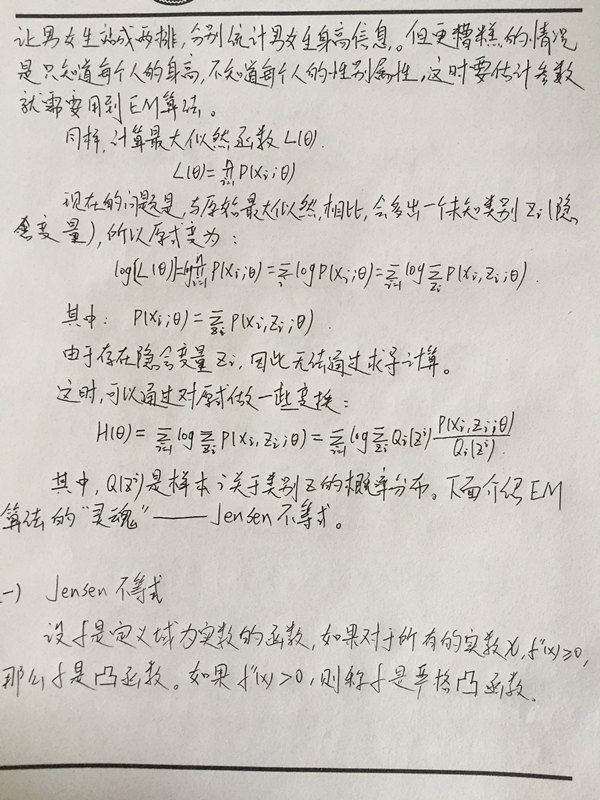 让男女生站成两排,分别统计男女生身高信息。但更糟糕的情况
是只知道每个人的身高,不知道每个人的性别属性,这时要估计参数
就需要用到EM算法。
同样,计算最大似然函数L(θ).
L(θ)=∏ᵢ₌₁ⁿ P(xᵢ;θ)
现在的问题是,与原始最大似然,相比,会多出一个未知类别zᵢ(隐
含变量),所以原式变为:
log(L(θ))=log∏ᵢ₌₁ⁿ P(xᵢ;θ)=∑ᵢ logP(xᵢ;θ)=∑ᵢ₌₁ log∑zᵢ P(xᵢ,zᵢ;θ).
其中: P(xᵢ;θ)=∑zᵢ P(xᵢ,zᵢ;θ).
由于存在隐含变量zᵢ,因此无法通过求导计算。
这时,可以通过对原式做一些变换:
H(θ)=∑ᵢ₌₁ log∑zᵢ P(xᵢ,zᵢ;θ)=∑ᵢ₌₁ log∑zᵢ Qᵢ(zⁱ) P(xᵢ,zᵢ;θ)/Qᵢ(zⁱ).
其中,Q(zⁱ)是样本i关于类别z的概率分布。下面介绍EM
算法的“灵魂”——Jensen不等式。
一) Jensen不等式
设f是定义域为实数的函数,如果对于所有的实数x,f''(x)≥0,
那么f是凸函数。如果f''(x)>0,则称f是严格凸函数。